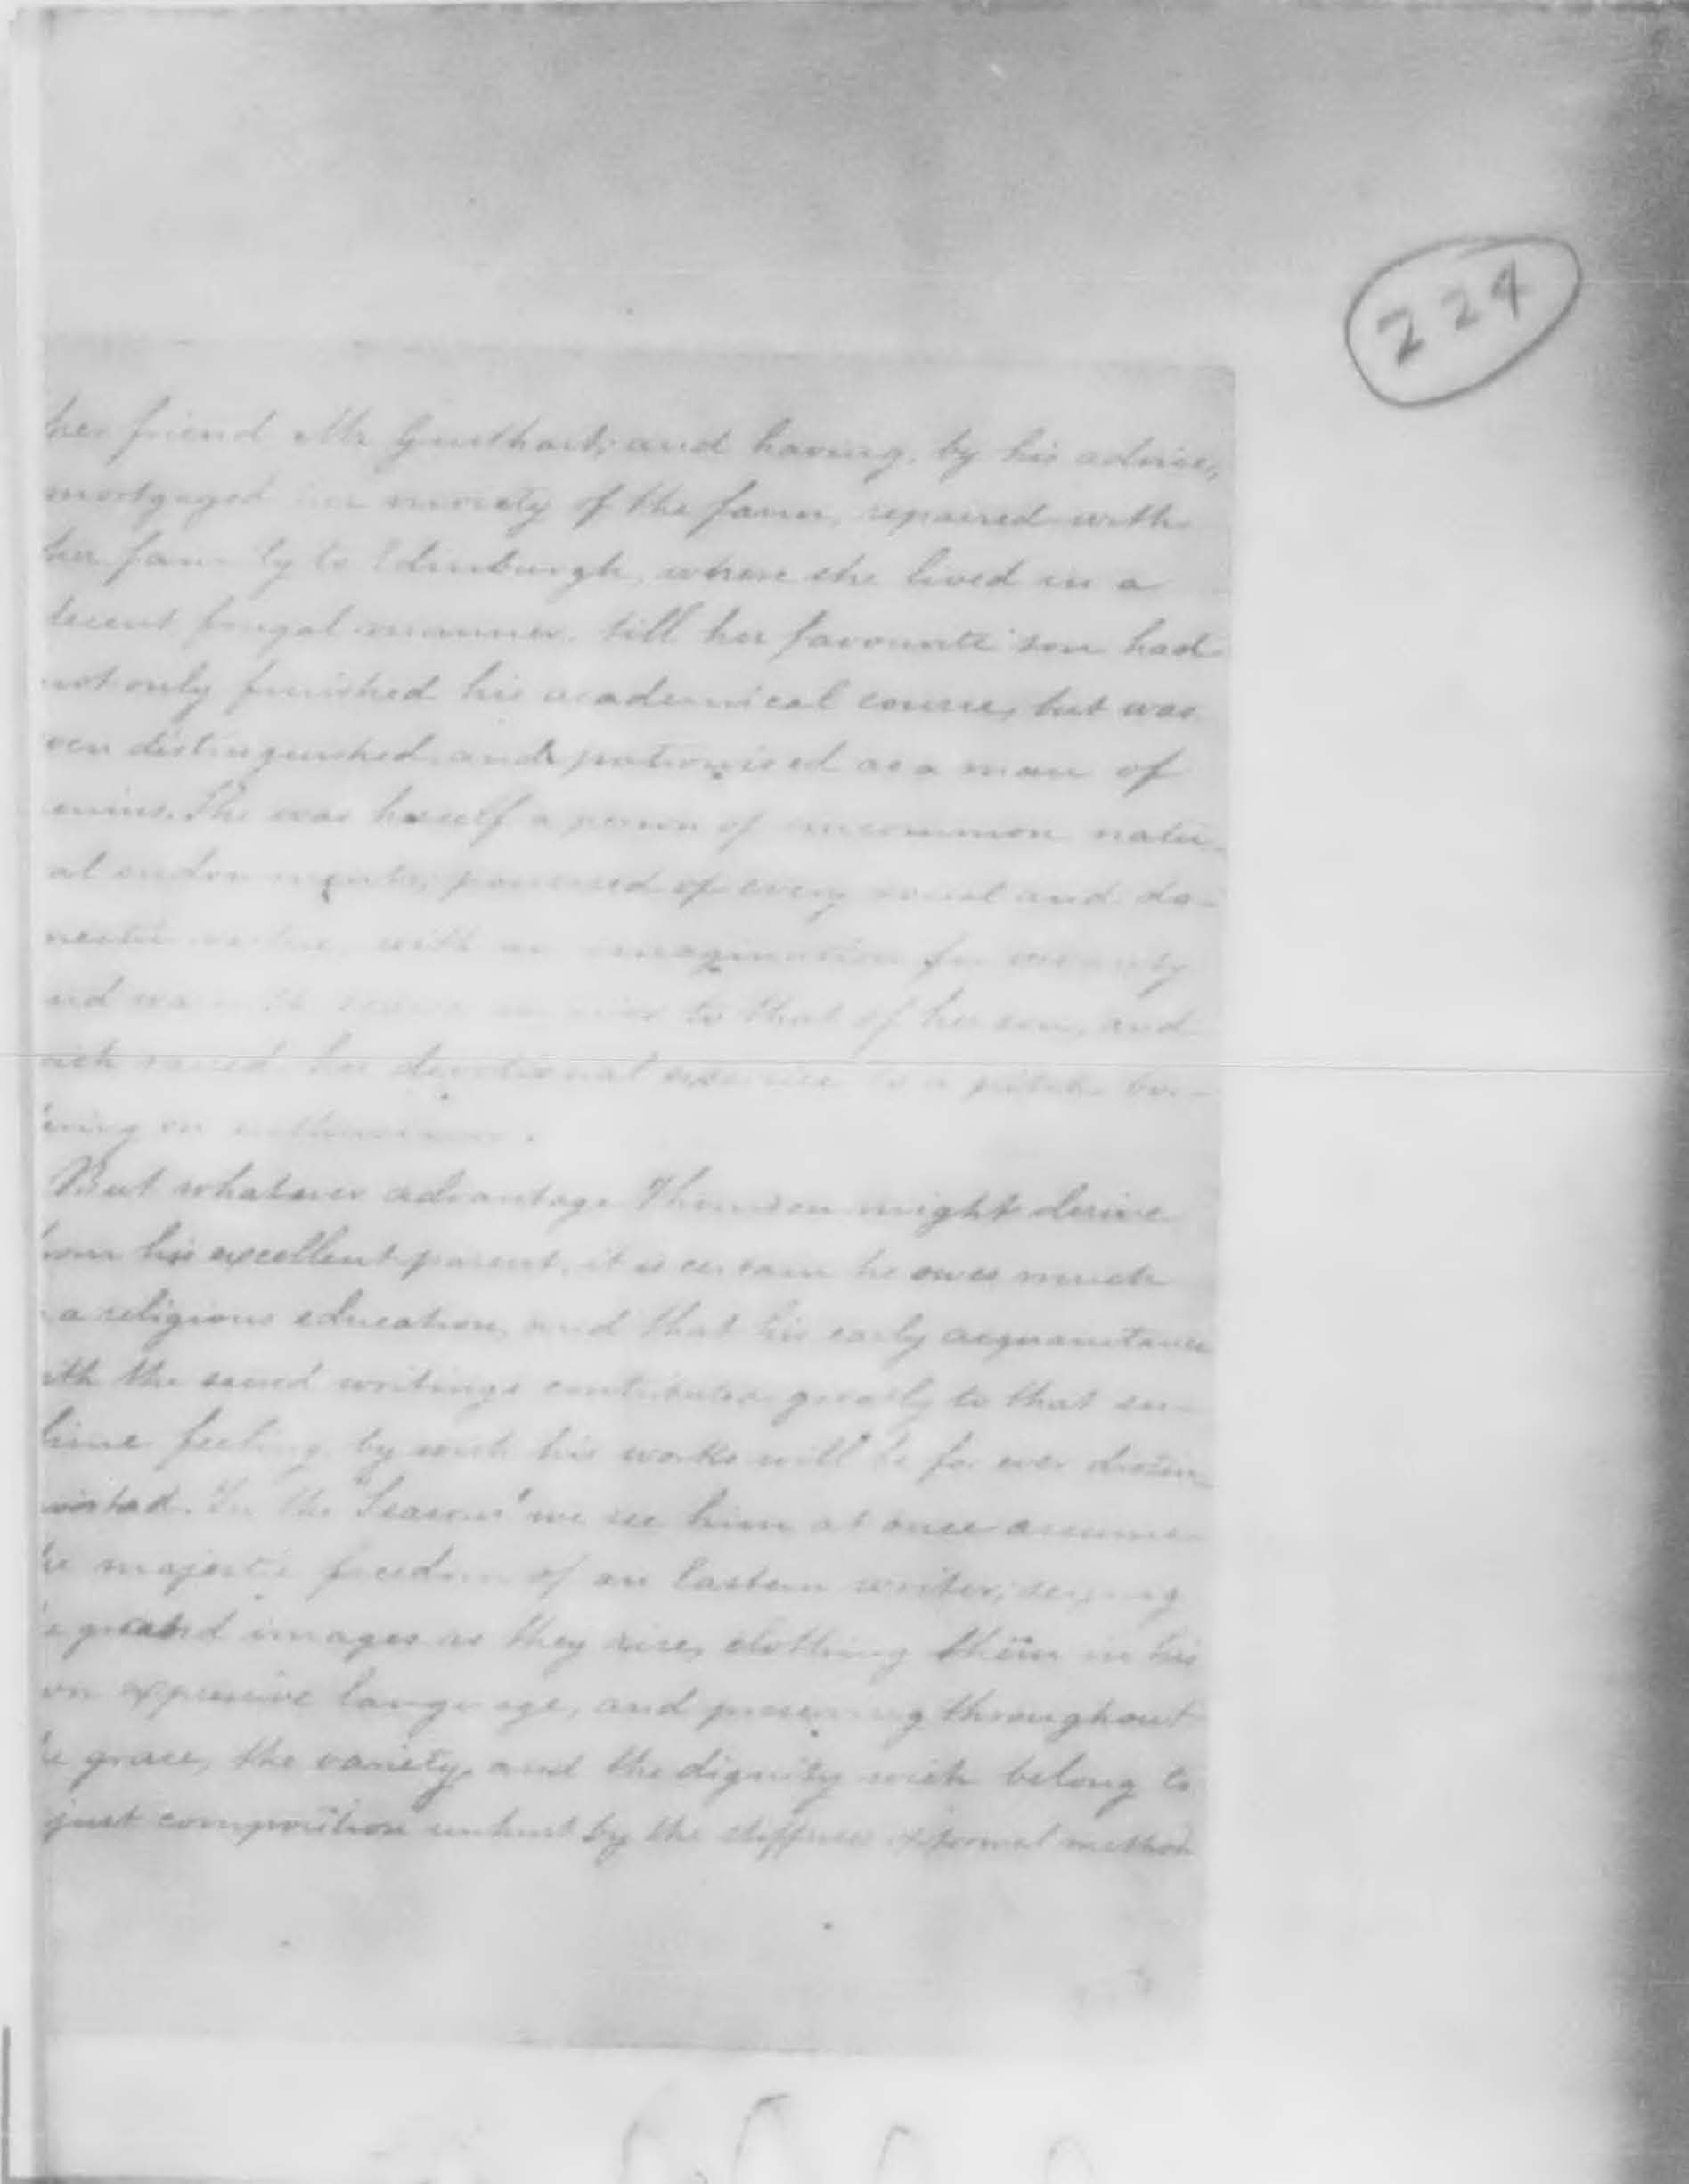 224
her friend Mr Gusthart; and having, by his advice,
mortgaged her moiety of the farm, repaired with
her family to Edinburgh, where she lived in a
decent frugal manner, till her favourite son had
not only finished his academical course, but was
ven distinguished and patronised as a man of
enius. She was herself a person of uncommon natu-
al endowments, possessed of every social and do-
mestic virtue, with an imagination for vivacity
nd warmth scarce inferior to that of her son, and
wich raised her devotional exercise to a pitch bor-
ering on enthusiasm.
But whatever advantage Thomson might derive
from his excellent parent, it is certain he owes much
a religious education, and that his early acquaintance
ith the sacred writings contributed greatly to that su-
lime feeling, by wich his works will be for ever distin-
uished. In the "Seasons" we see him at once assume
he majestic freedom of an Eastern writer, seizing
e grand images as they rise, clothing them in his
wn expressive language, and preserving throughout
he grace, the variety, and the dignity wich belong to
just composition unhurt by the stiffness of formal method